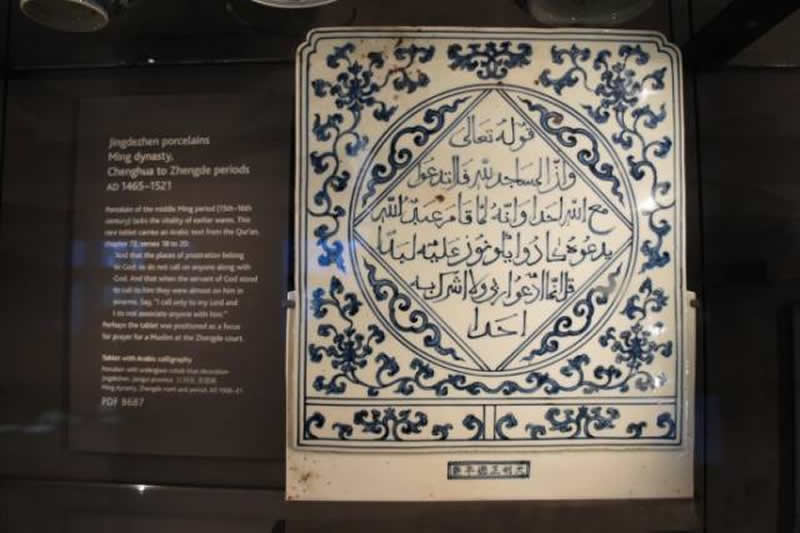 Jingdezhen porcelains
Ming dynasty,
Chenghua to Zhengde periods
AD 1465–1521
Porcelain of the middle Ming period (15th–16th
century) lacks the vitality of earlier wares. This
rare tablet carries an Arabic text from the Qur'an,
chapter 72, verses 18 to 20:
'And that the places of prostration belong
to God so do not call on anyone along with
God. And that when the servant of God stood
to call to him they were almost on him in
swarms. Say, "I call only to my Lord and
I do not associate anyone with him."'
Perhaps the tablet was positioned as a focus
for prayer for a Muslim at the Zhengde court.
Tablet with Arabic calligraphy
Porcelain with underglaze cobalt-blue decoration
Jingdezhen, Jiangxi province
Ming dynasty, Zhengde mark and period, AD 1506–21
PDF B687
قوله تعالى
وان المساجد لله فلا تدعوا
مع الله احدا وانه لما قام عبد الله
يدعوه كادوا يكونون عليه لبدا
قل انما ادعوا ربي ولا اشرك به
احدا
大明正德年製